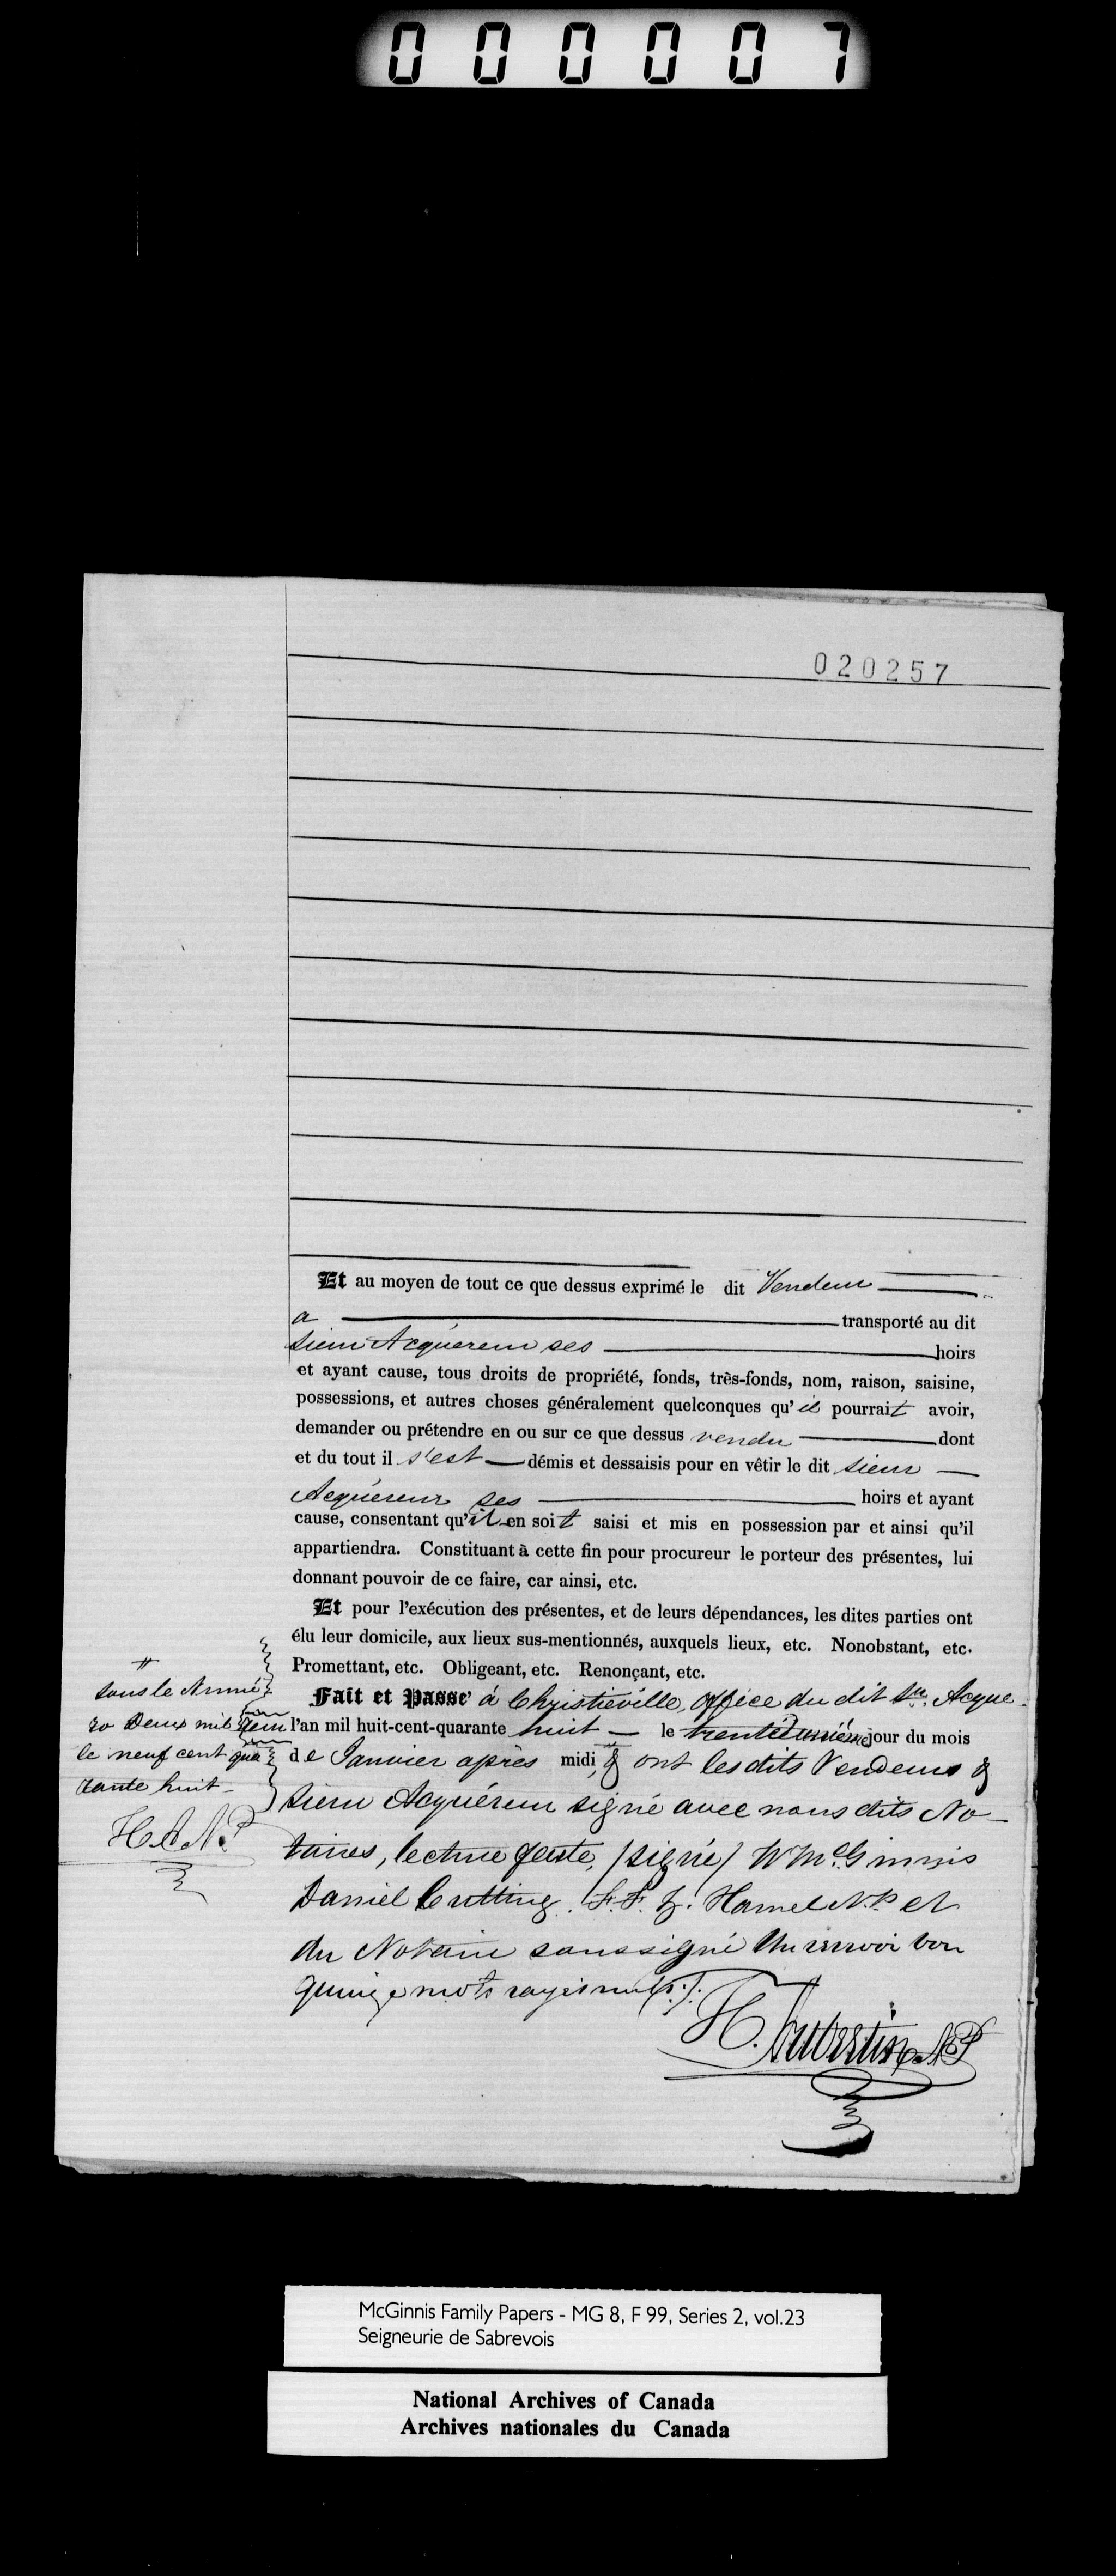 000007
020257
Et au moyen de tout ce que dessus exprimé le dit Vendeur
a transporté au dit
sieur Acquéreur ses hoirs
et ayant cause, tous droits de propriété, fonds, très-fonds, nom, raison, saisine,
possessions, et autres choses généralement quelconques qu'il pourrait avoir,
demander ou prétendre en ou sur ce que dessus vendu dont
et du tout il s'est démis et dessaisis pour en vêtir le dit sieur
Acquéreur ses hoirs et ayant
cause, consentant qu'il en soit saisi et mis en possession par et ainsi qu'il
appartiendra. Constituant à cette fin pour procureur le porteur des présentes, lui
donnant pouvoir de ce faire, car ainsi, etc.
Et pour l'exécution des présentes, et de leurs dépendances, les dites parties ont
élu leur domicile, aux lieux sus-mentionnés, auxquels lieux, etc. Nonobstant, etc.
Promettant, etc. Obligeant, etc. Renonçant, etc.
Fait et Passé à Christieville, office du dit Sr. Acque-
reur l'an mil huit-cent-quarante huit le trente unième jour du mois
de Janvier après midi, # & ont les dits Vendeur &
sieur Acquéreur signé avec nous dits No-
taires, lecture faite, (signé) W McGinnis
Daniel Cutting. Hamel N.P. et
du Notaire soussigné Un renvoi bon
quinze mots rayés nuls
H. Aubertin N.P
#
sous le Numé
ro Deux mil
le neuf cent qua
rante huit
H.A. N.P
McGinnis Family Papers - MG 8, F 99, Series 2, vol.23
Seigneurie de Sabrevois
National Archives of Canada
Archives nationales du Canada